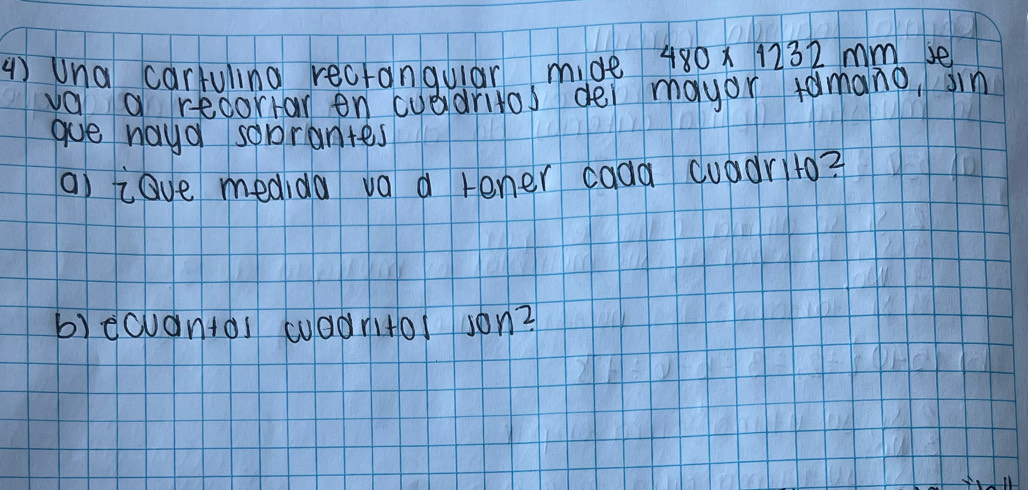 4) Una cartulina rectangular mide 480 x 1232 mm se
va a recortar en cuadritos del mayor tamaño, sin
que haya sobrantes
a) ¿Que medida va a tener cada cuadrito?
b) ¿cuantos cuadritos son?